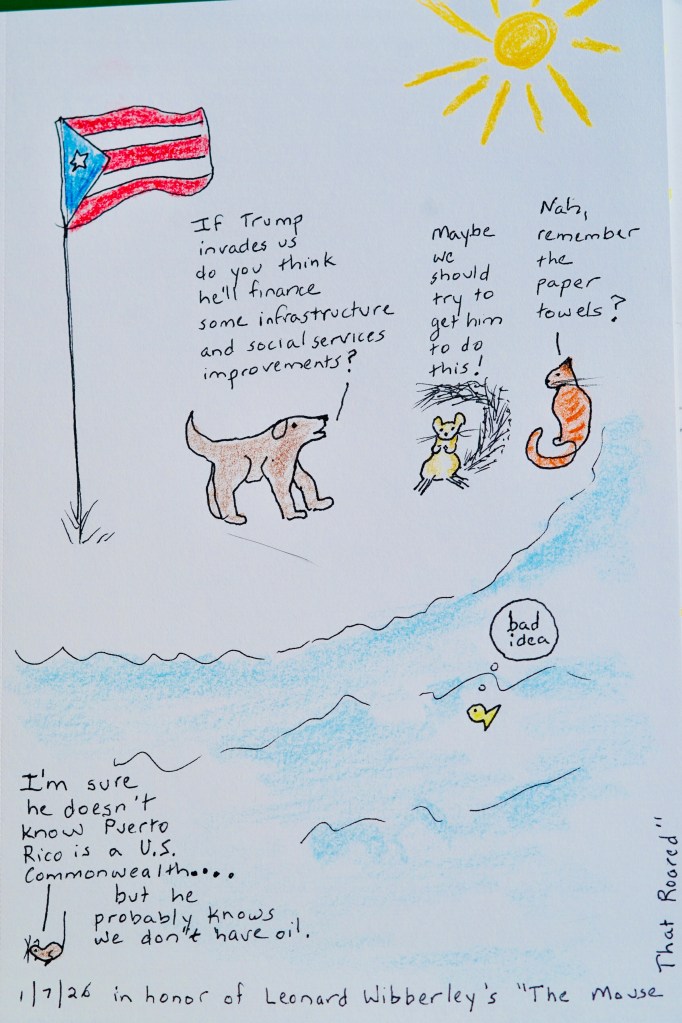 If Trump
invades us
do you think
he'll finance
some infrastructure
and social services
improvements?
Maybe
we
should
try to
get him
to do
this!
Nah,
remember
the
paper
towels?
bad
idea
I'm sure
he doesn't
know Puerto
Rico is a U.S.
Commonwealth....
but he
probably knows
we don't have oil.
1/7/26 in honor of Leonard Wibberley's "The Mouse
That Roared"